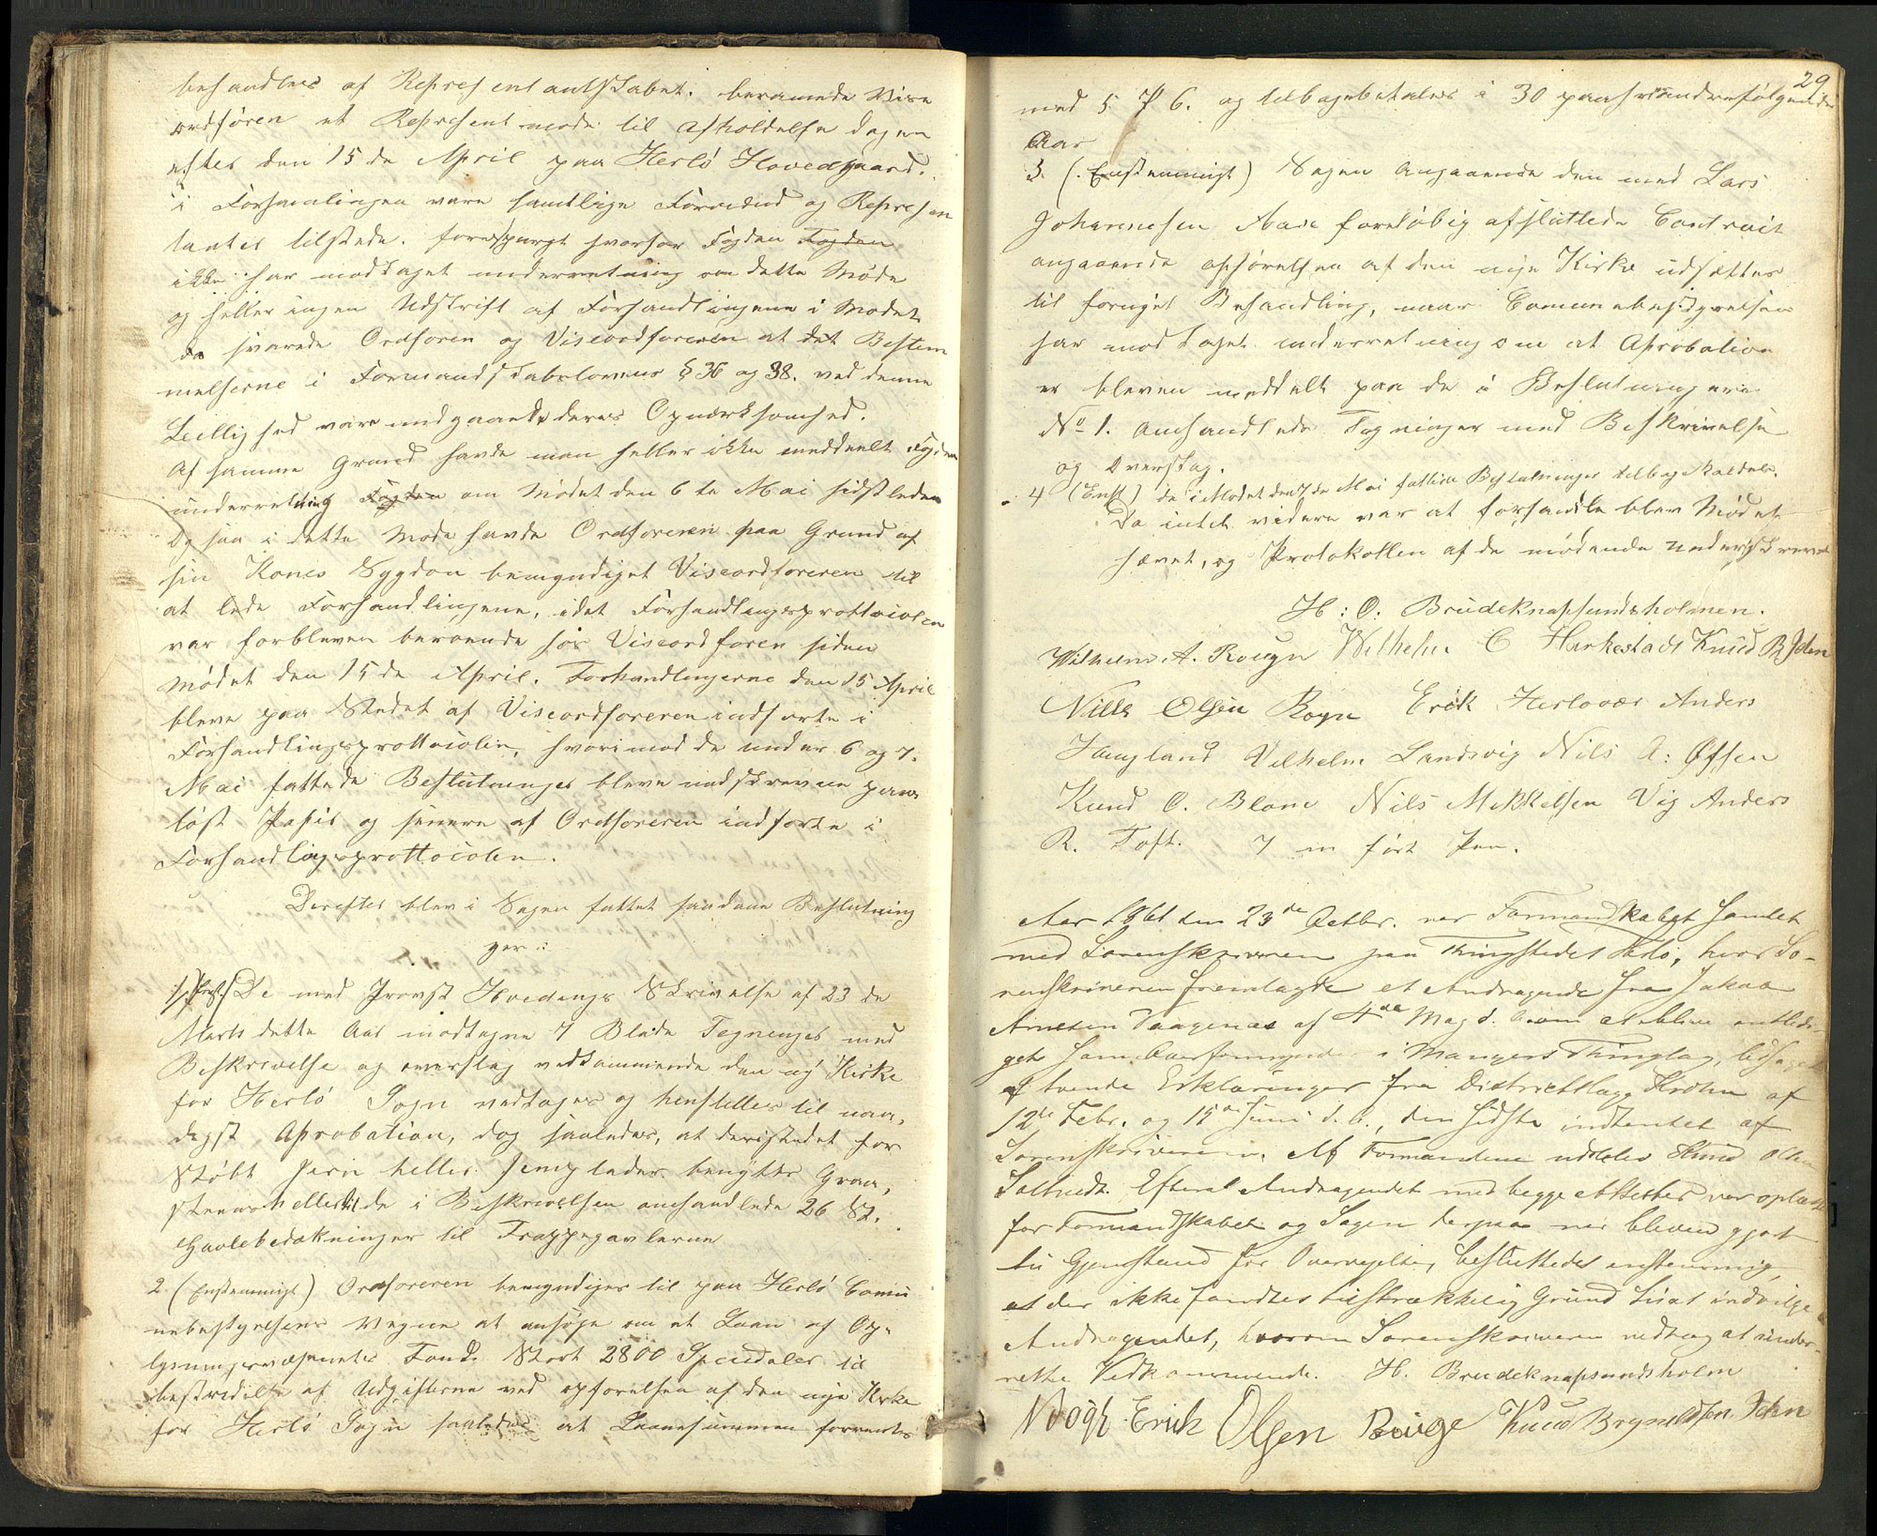 behandles af Representantskabet. beramede Vise
ordføren et Represent møde til Afholdelse dagen
efter den 15de April paa Herlö Hovedgaard.
i Forsamlingen vare samtlige Formænd og Represen
tanter tilstede. forespurgt hvorfor Fogden Fogden
ikke har modtaget underretning om dette Møde
og heller ingen Udskrift af Forhandlingene i Mødet
da svarede Ordforen og Viseordforeren at det Bestem
melserne i Formandskabslovens § 36 og 38. ved denne
Leilighed vare undgaaede deres Opmærksomhed.
Af samme Grund havde man heller ikke meddeelt Fogden
underretning Fogden om Mødet den 6te Mai sidstleden
Og saa i dette Møde havde Ordforeren paa Grund af
sin Kones Sygdom bemyndiget Viseordforeren til
at lede Forhandlingene, idet Forhandlingsprottocolen
var forbleven beroende hos Viseordforen siden
Mødet den 15de April. Forhandlingerne den 15 April
bleve paa Stedet af Viseordforeren indførte i
Forhandlingsprottocolen, hvorimod de under 6 og 7.
Mai fattede Beslutninger bleve nedskrevne paa
løst Papir og senere af Ordforeren indførte i
Forhandlingsprottocolen.
Derefter blev i Sagen fattet saadane Beslutning
ger:
1/ De med Provst Hvedings Skrivelse af 23de
Marts dette Aar modtagne 7 Blade Tegninger med
Beskrivelse og overslag vedkommende den ny Kirke
for Herlö Sogn vedtages og henstilles til naa,
digst Aprobation, dog saaledes, at deristedet for
Støbt Jern heller benyttes Graa,
steens heller til de i Beskrivelsen omhandlede 26 St.
Gavlebedækninger til Trappegavlerne
2. (Enstemmigt) Ordforeren bemyndiges til paa Herlö Comu
nebestyrelsens Vegne at ansøge om et Laan af Op,
lysningsvæsenets Fond. Stort 2800 Speciedaler til
bestridelse af Udgifterne ved opførelsen af den nye Kirke
for Herlö Sogn saaledes at Laanesummen forrentes
29
med 5 P C. og tilbagebetales i 30 paahverandrefølgende
Aar
3. (Enstemmigt) Sagen angaaende den med Lars
Johannesen Aase foreløbig afsluttede Contract
angaaende opførelsen af den nye Kirke udsættes
til fornyet Behandling, naar Comunebestyrelsen
har modtaget underretning om at Aprobation
er bleven meddelt paa de i Beslutningen
No 1. omhandlede Tegninger med Beskrivelse
og Overslag.
4 (Enst) de i Mødet den 7de Mai fattede Beslutninger tilbagekaldes.
Da intet videre var at forhandle blev Mødet
hævet, og Protokollen af de mødende underskreven
H: O: Brudeknapsundsholmen.
Wilhelm A. Rougn Wilhelm C Hankestad Knud B Jden
Nills Olsen Rogn Erik Herlovær Anders
Haugland Vilhelm Landsvig Nils A: Ofsen
Knud O. Blom Nils Mikkelsen Vig Anders
R. Toft. 7 m ført Pen.
Aar 1861 den 23de Octbr. var Formandskabet samlet
med Sorenskriveren paa Thingstedet Herlö, hvor So-
renskriveren fremlagde et Andragende fra Jakob
Arnesen Vaagenes af 4de Mag d. A. om at blive entledi-
get som Overformynder i Mangers Thinglag, ledsaget
af tvende Erklæringer fra Districtslæge Krohn af
12te Febr. og 15de Juni d. A., den sidste indhentet af
Sorenskriveren. Af Formændene udeblev Knud Olsen
Soltvedt. Efterat Andragendet med begge Attester var oplæst
for Formandskabet og Sagen derpaa var bleven gjort
til Gjenstand for Overveielse, besluttedes enstemmig,
at der ikke fandtes tilstrækkelig Grund til at indvilge
Andragendet, hvorom Sorenskriveren vedtog at under-
rette Vedkommende. H. Brudeknapsundsholm
N Vogt Erik Olsen Rouge Knud Brynildsen Jden